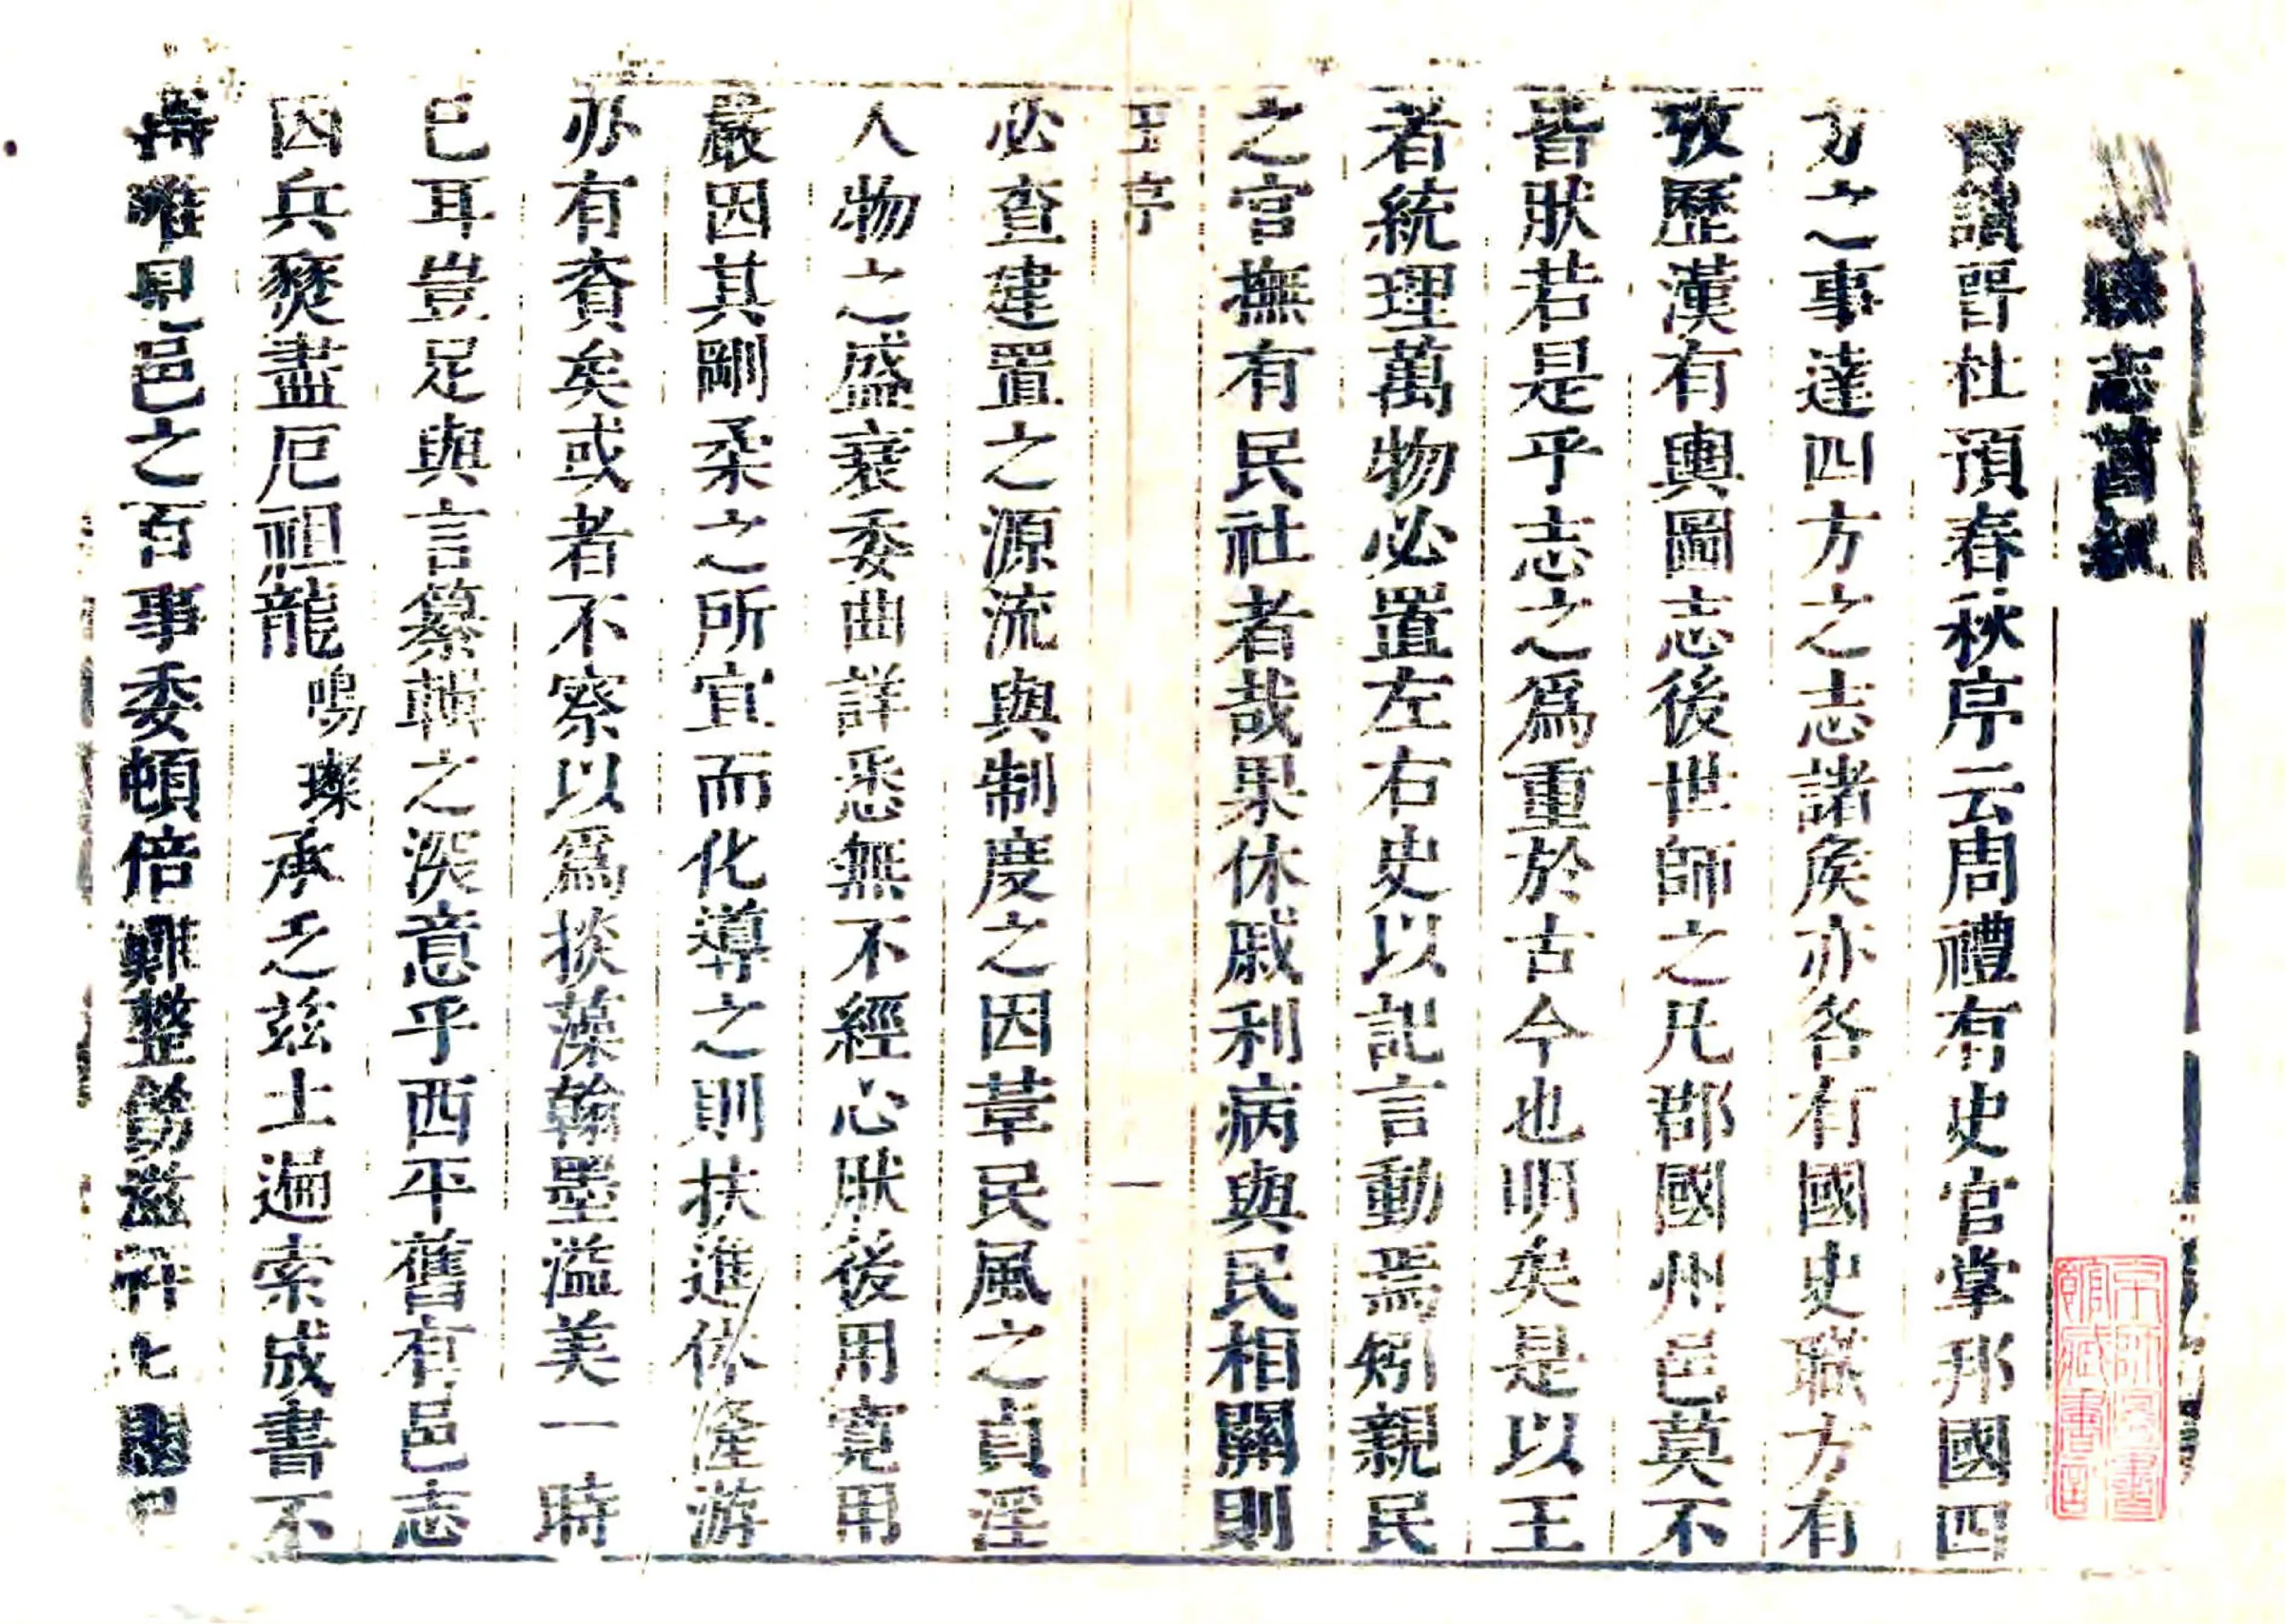 縣志舊叙
嘗讀晉杜預春秋序云周禮有史官掌邦國四
方之事達四方之志諸侯亦各有國史職方有
攷歷漢有輿圖志後世師之凡郡國州邑莫不
皆狀若是乎志之爲重於古今也明矣是以王
者統理萬物必置左右史以記言動焉矧親民
之官撫有民社者哉果休戚利病與民相關則
王序
一
必查建置之源流與制度之因革民風之貞淫
人物之盛衰委曲詳悉無不經心肰後用寬用
嚴因其剛柔之所宜而化導之則扶進休隆游
亦有賫矣或者不察以爲掞藻翰墨溢美一時
巳耳豈足與言纂輯之深意乎西平舊有邑志
因兵燹盡厄祖龍鳴璨承乏茲土遍索成書不
唯見邑之百事委頓倍難整飭滋